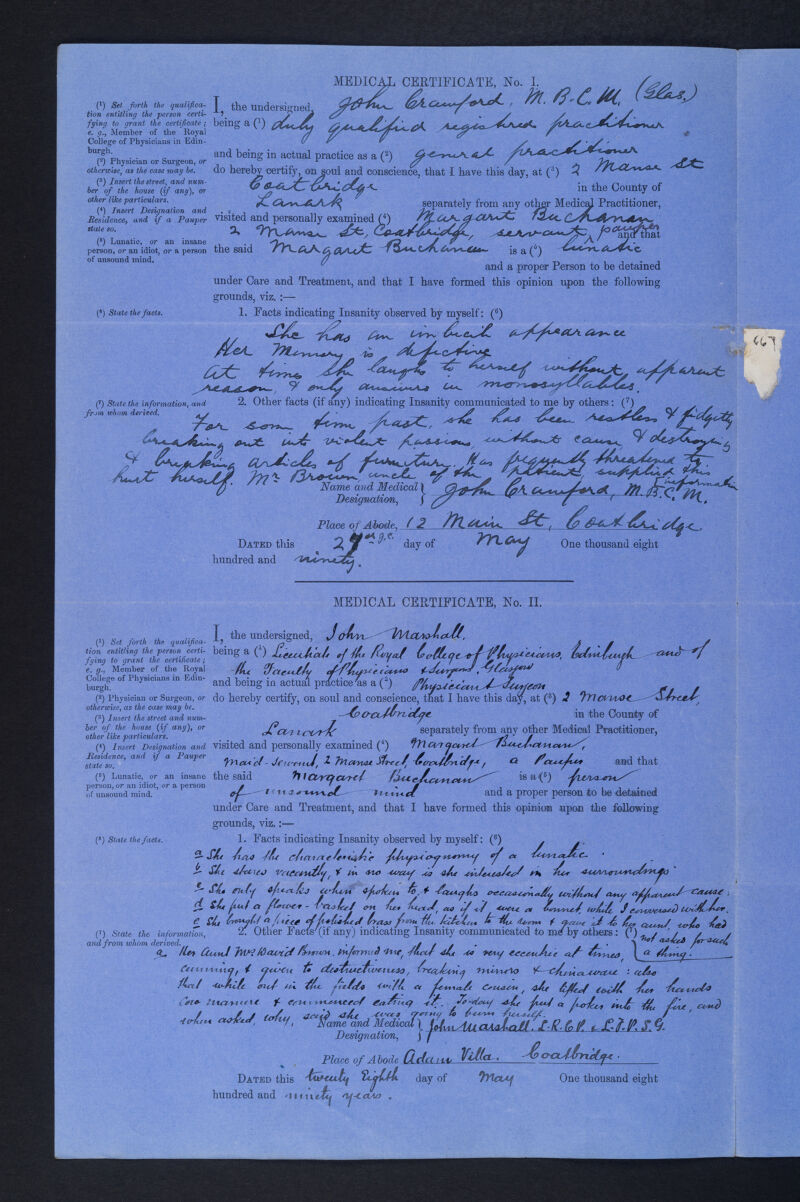 MEDICAL CERTIFICATE, No. I.
(1) Set forth the qualifica-
tion entitling the person certi-
fying to grant the certificate;
e. g., Member of the Royal
College of Physicians in Edin-
burgh.
(2) Physician or Surgeon, or
otherwise, as the case may be.
(3) Insert the street, and num-
ber of the house (if any), or
other like particulars.
(4) Insert Designation and
Residence, and if a Pauper
state so.
(5) Lunatic, or an insane
person, or an idiot, or a person
of unsound mind.
I, the undersigned, John Crawford, M.B.C.M. (Glas.)
being a (1) duly qualified registered practitioner
and being in actual practice as a (2) general practitioner
do hereby certify, on soul and conscience, that I have this day, at (3) 2 Manse St
Coatbridge in the County of
Lanark separately from any other Medical Practitioner,
visited and personally examined (4) Margaret Buchanan
2 Manse St, Coatbridge, servant, pauper and that
the said Margaret Buchanan is a (5) lunatic
and a proper Person to be detained
under Care and Treatment, and that I have formed this opinion upon the following
grounds, viz. :—
(6) State the facts.
1. Facts indicating Insanity observed by myself: (6)
She has an imbecile appearance
Her memory is defective
At times she laughs to herself without apparent
reason, & only answers in monosyllables.
667
(7) State the information, and
from whom derived.
2. Other facts (if any) indicating Insanity communicated to me by others: (7)
For some time past, she has been restless & fidgetty
breaking out into violent passions, without cause & destroying
& breaking articles of furniture. Has frequently threatened to
hurt herself. Mr Brown, uncle of the patient, supplied this information
Name and Medical Designation, John Crawford, M.B.C.M.
Place of Abode, 12 Main St, Coatbridge
DATED this 29 J.C. day of May One thousand eight
hundred and ninety.
MEDICAL CERTIFICATE, No. II.
(1) Set forth the qualifica-
tion entitling the person certi-
fying to grant the certificate;
e. g., Member of the Royal
College of Physicians in Edin-
burgh.
(2) Physician or Surgeon, or
otherwise, as the case may be.
(3) Insert the street and num-
ber of the house (if any), or
other like particulars.
(4) Insert Designation and
Residence, and if a Pauper
state so.
(5) Lunatic, or an insane
person, or an idiot, or a person
of unsound mind.
I, the undersigned, John Marshall,
being a (1) Licentiate of the Royal College of Physicians, Edinburgh and of
the Faculty of Physicians & Surgeons, Glasgow
and being in actual practice as a (2) Physician & Surgeon
do hereby certify, on soul and conscience, that I have this day, at (3) 2 Manse Street,
Coatbridge in the County of
Lanark separately from any other Medical Practitioner,
visited and personally examined (4) Margaret Buchanan,
maid-servant, 2 Manse Street, Coatbridge, a Pauper and that
the said Margaret Buchanan is a (5) person
of unsound mind and a proper person to be detained
under Care and Treatment, and that I have formed this opinion upon the following
grounds, viz. :—
(6) State the facts.
1. Facts indicating Insanity observed by myself: (6)
a She has the characteristic physiognomy of a lunatic.
b She stares vacantly, & in no way is she interested in her surroundings
c She only speaks when spoken to, & laughs occasionally without any apparent cause;
d She put a flower-basket on her head, as if it were a bonnet, while I conversed with her.
e She brought a piece of polished brass from the kitchen to the room & gave it to her aunt, who had
not asked for such
a thing.
(7) State the information,
and from whom derived.
2. Other Facts (if any) indicating Insanity communicated to me by others: (7)
a Her Aunt Mrs David Brown, informed me, that she is very eccentric at times,
cunning, & given to destructiveness, breaking mirrors & chinaware: also
that while out in the fields with a female cousin, she lifted with her hands
Cow manure & commenced eating it. To-day she put a poker into the fire, and
when asked, why, said she was going to burn herself.
Name and Medical Designation, John Marshall. L.R.C.P. & L.F.P.S.G.
Place of Abode Adam Villa. Coatbridge.
DATED this twenty Eighth day of May One thousand eight
hundred and ninety years.